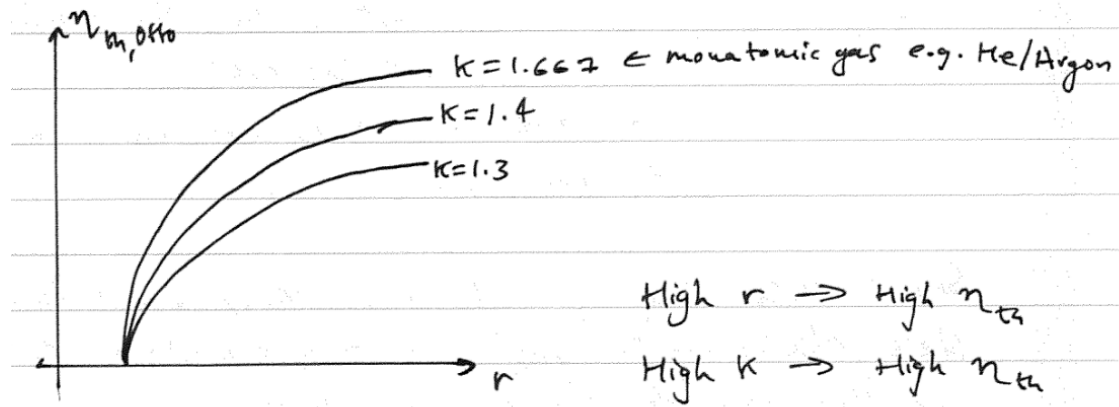 η_th,Otto
K=1.667 ← monatomic gas e.g. He/Argon
K=1.4
K=1.3
High r → High η_th
r
High K → High η_th